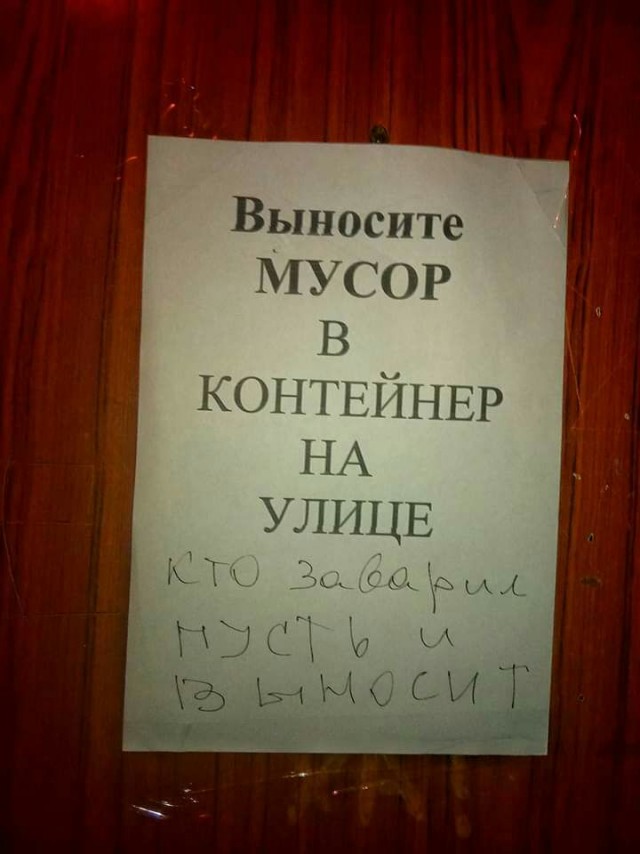 Выносите
МУСОР
В
КОНТЕЙНЕР
НА
УЛИЦЕ
кто заварил
пусть и
выносит